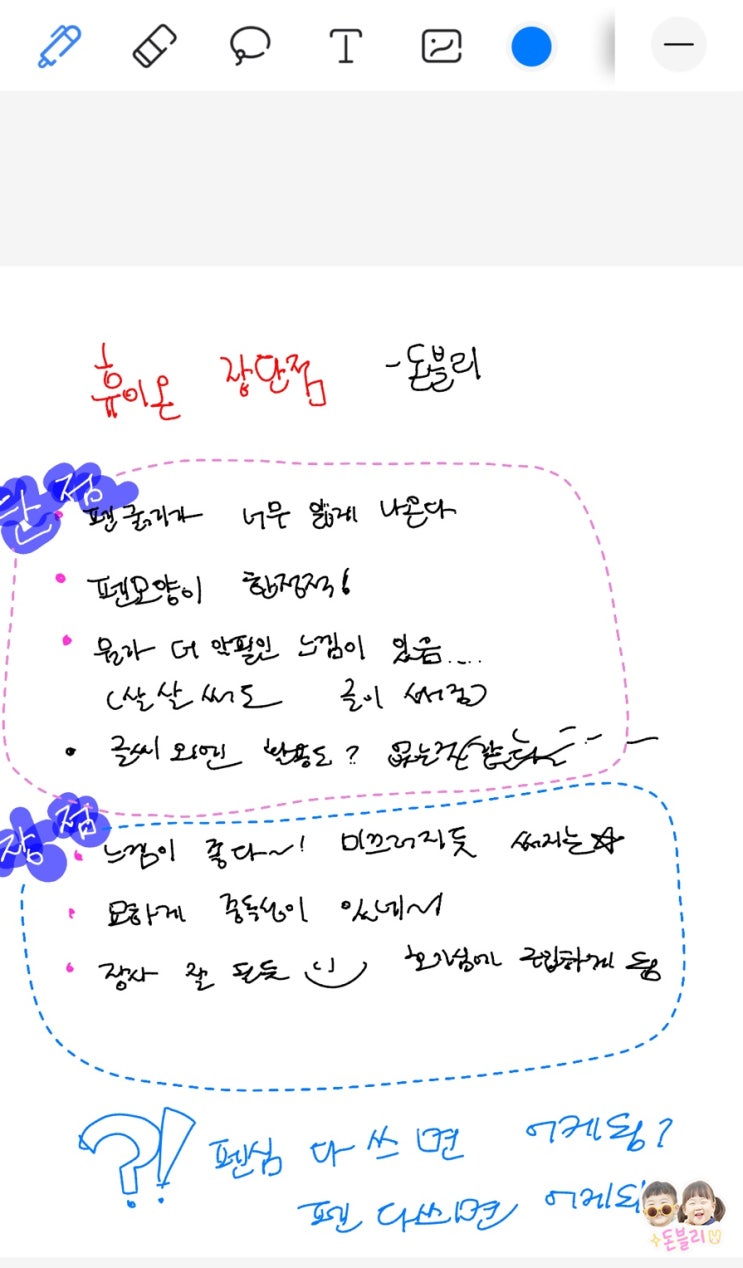 휴이온 장단점 -돈블리
단점
펜 굵기가 너무 얇게 나온다
펜모양이 한정적!
뭔가 더 악필인 느낌이 있음....
(살살 써도 글이 써짐)
글씨 외엔 활용도? 없는것 같다
장점
느낌이 좋다~! 미끄러지듯 써지는☆
묘하게 중독성이 있네~
장사 잘 된듯 호기심에 구입하게 됨
?! 펜심 다 쓰면 어케됨?
펜 다쓰면 어케되
돈블리